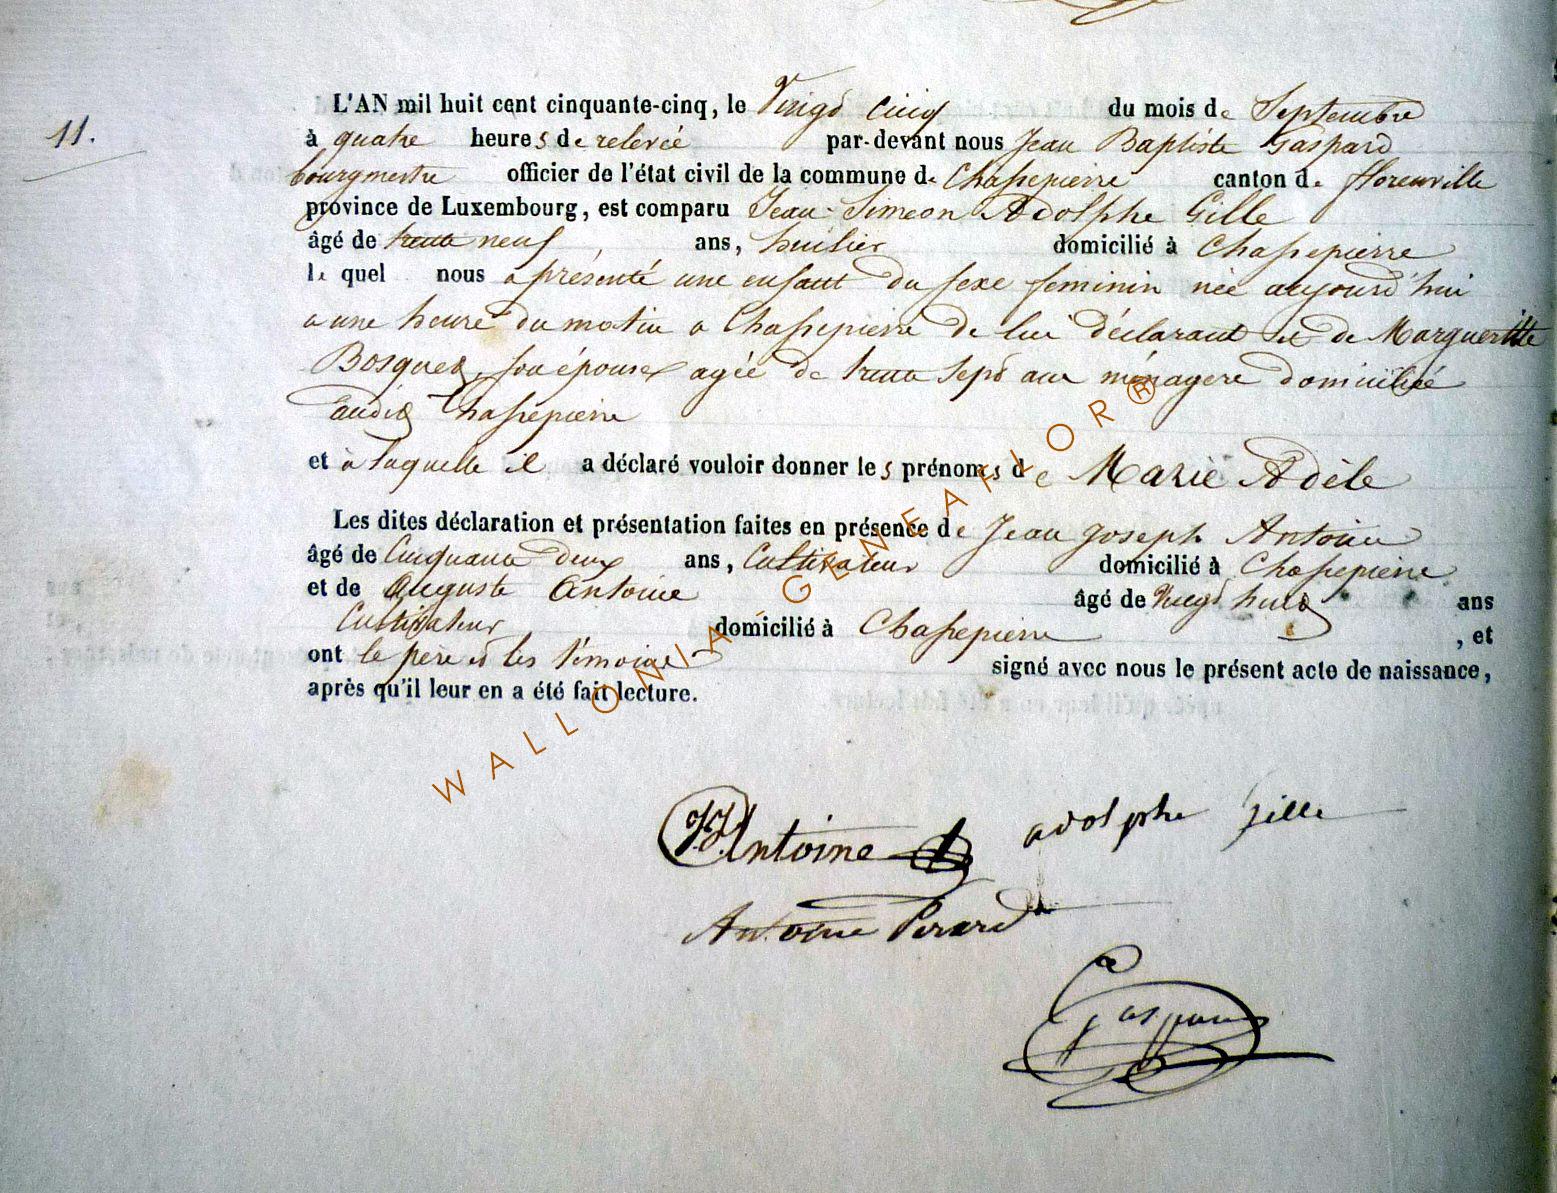 11.
L'AN mil huit cent cinquante-cinq, le Vingt cinq du mois de Septembre
à quatre heures de relevée par-devant nous Jean Baptiste Gaspard
bourgmestre officier de l'état civil de la commune de Chassepierre canton de florenville
province de Luxembourg, est comparu Jean Simeon Adolphe Gille
âgé de trente neuf ans, huilier domicilié à Chassepierre
le quel nous a présenté une enfant du sexe feminin née aujourd'hui
a une heure du matin a Chassepierre de lui déclarant et de Margueritte
Bosquet, son épouse agée de trente sept ans ménagere domiciliée
audit Chassepierre
et à laquelle il a déclaré vouloir donner les prénoms de Marie Adèle
Les dites déclaration et présentation faites en présence de Jean Joseph Antoine
âgé de Cinquante deux ans, Cultivateur domicilié à Chassepierre
et de Auguste Antoine âgé de Vingt huit ans
Cultivateur domicilié à Chassepierre , et
ont le père et les témoins signé avec nous le présent acte de naissance,
après qu'il leur en a été fait lecture.
WALLONIA GENEAFLOR®
J.J. Antoine adolphe Gille
Antoine Perard
Gaspard